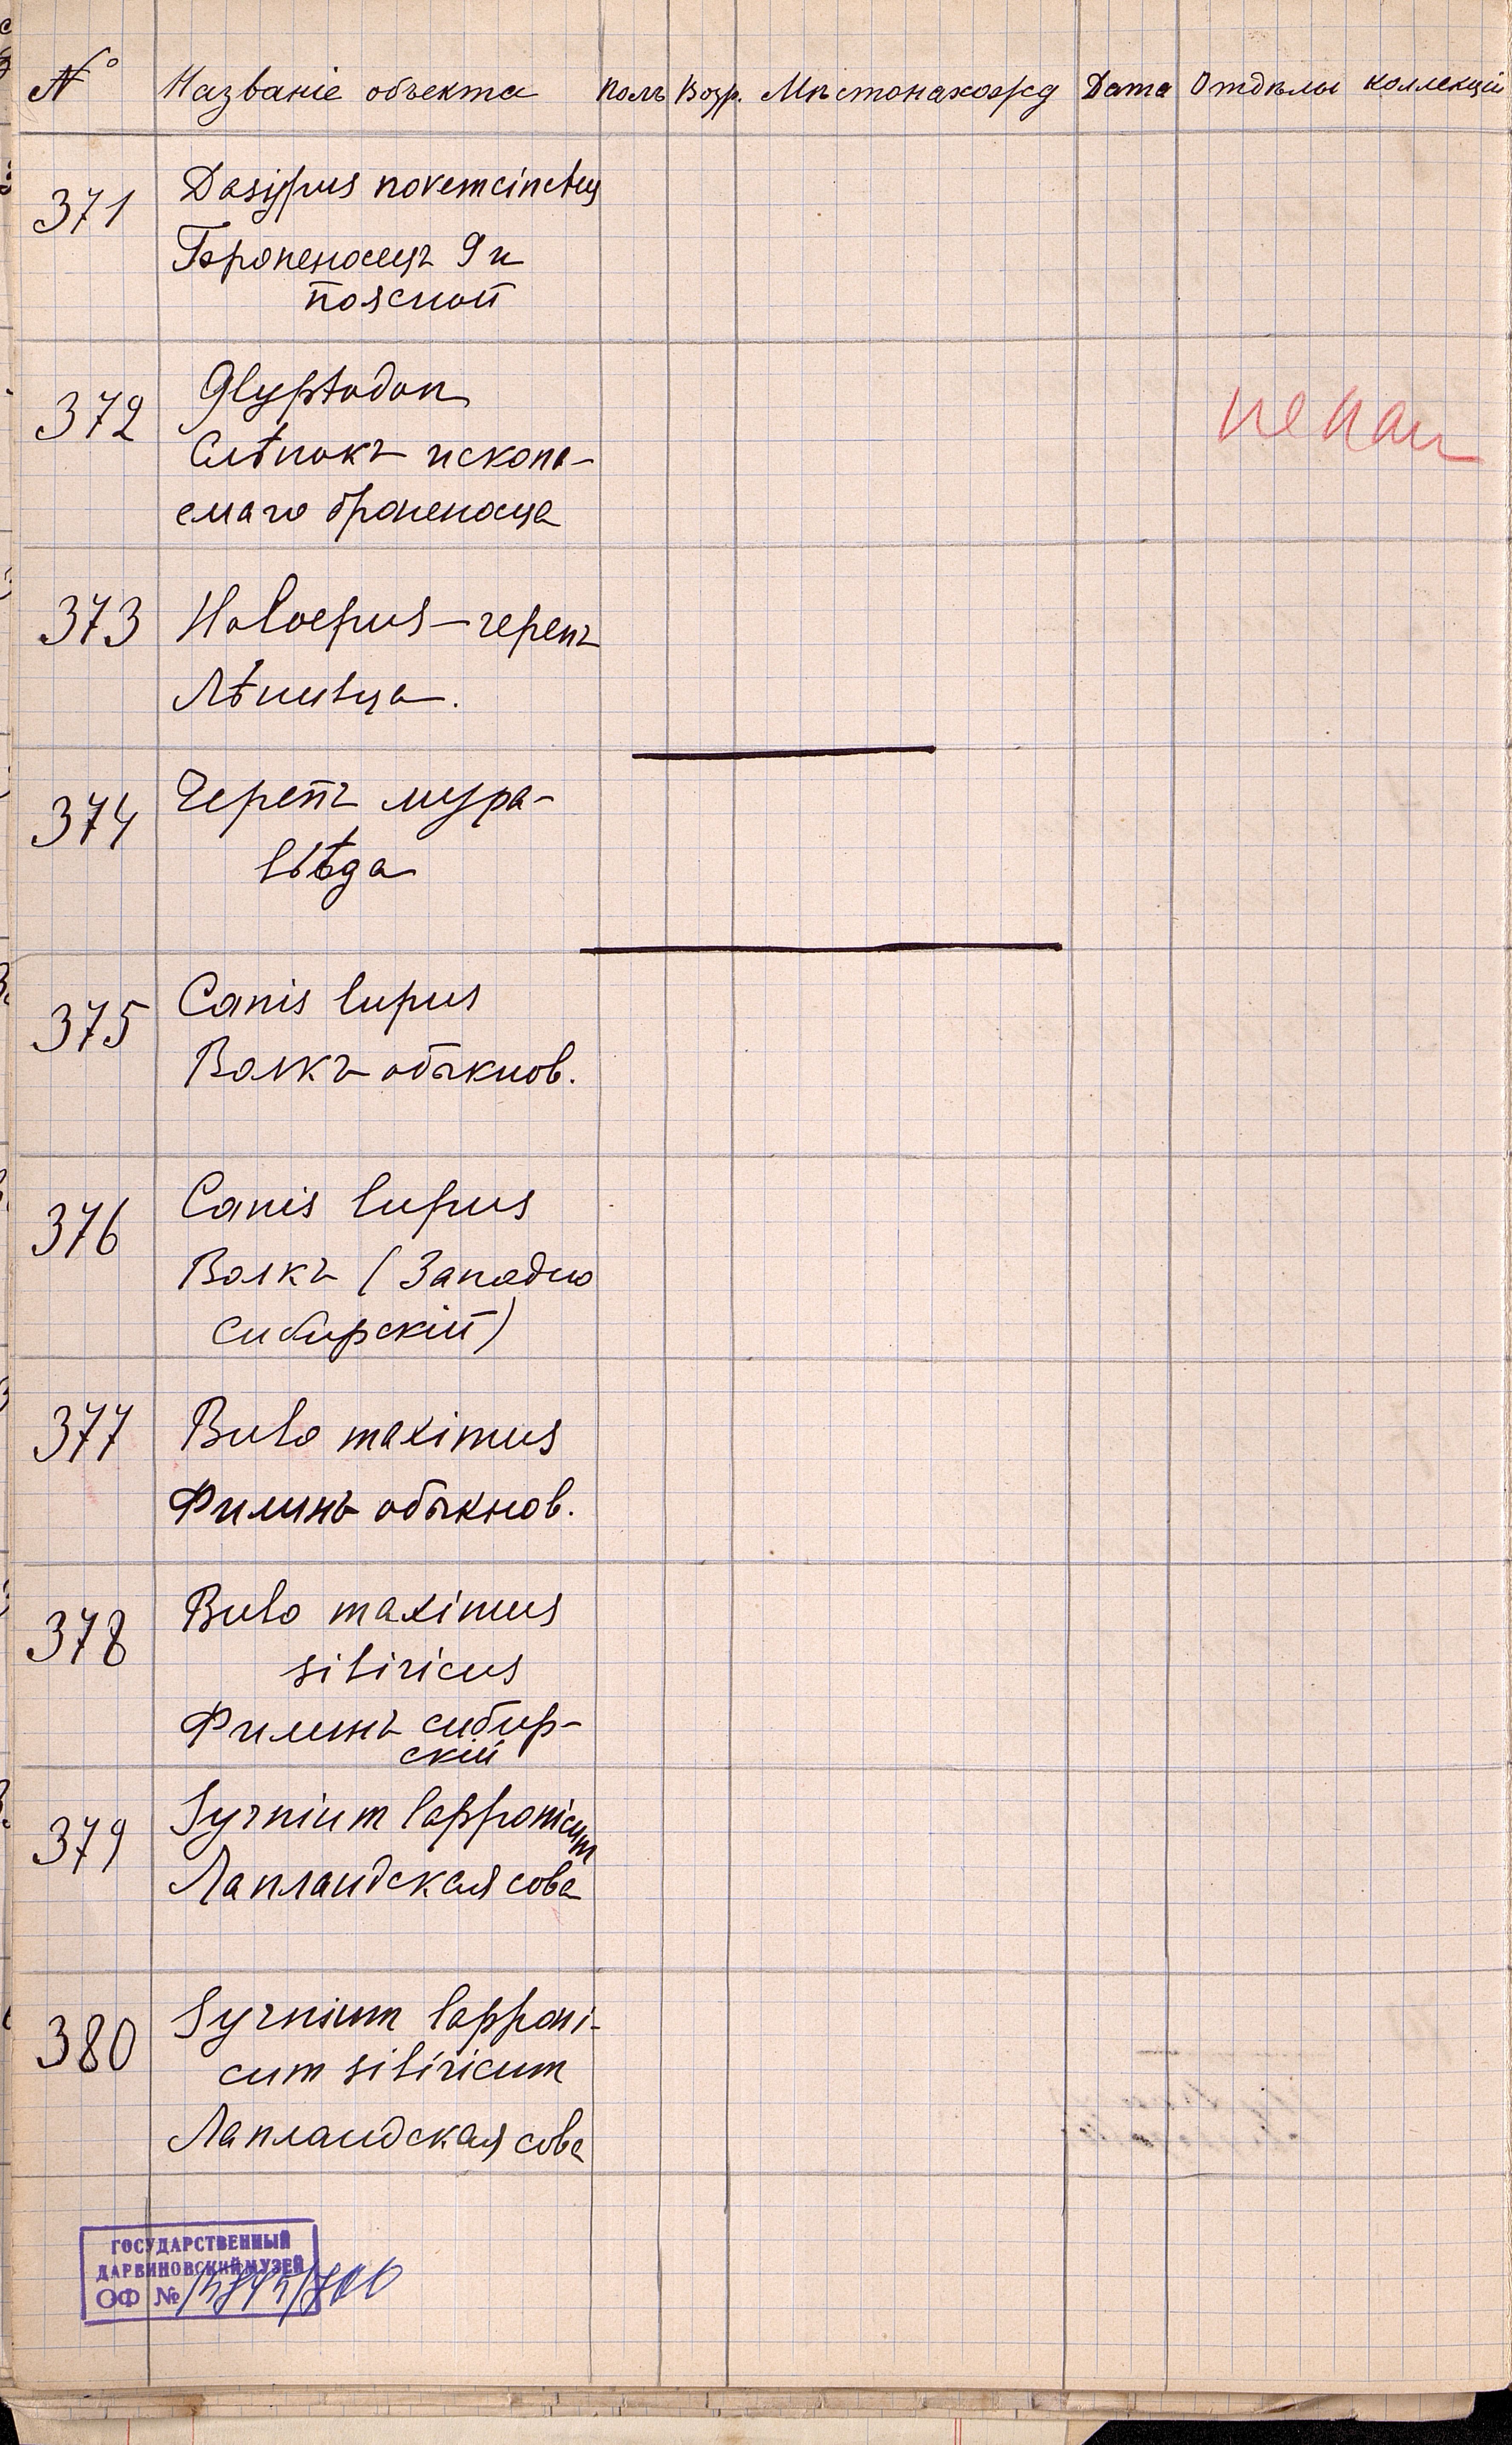 № Названіе объекта Полъ Возр. Мѣстонахожд Дата Отдѣлы коллекцій
371 Dasypus novemcinctus
Броненосецъ 9и
поясной
372 Glyptodon
Слѣпокъ ископа-
емаго броненосца
373 Holoepus - черепъ
Лѣнивца.
374 Черепъ мура-
вьѣда
375 Canis lupus
Волкъ обыкнов.
376 Canis lupus
Волкъ (Западно
сибирскій)
377 Bubo maximus
Филинъ обыкнов.
378 Bubo maximus
sibiricus
Филинъ сибир-
скій
379 Syrnium lapponicum
Лапландская сова
380 Syrnium lapponi-
cum sibiricum
Лапландская сова
ГОСУДАРСТВЕННЫЙ
ДАРВИНОВСКИЙ МУЗЕЙ
ОФ №